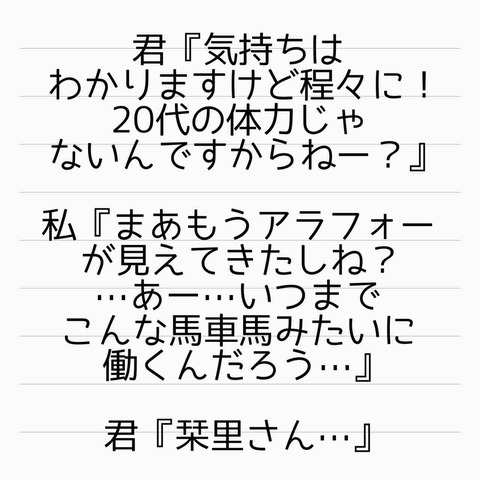 君『気持ちは
わかりますけど程々に！
20代の体力じゃ
ないんですからねー？』
私『まあもうアラフォー
が見えてきたしね？
…あー…いつまで
こんな馬車馬みたいに
働くんだろう…』
君『栞里さん…』